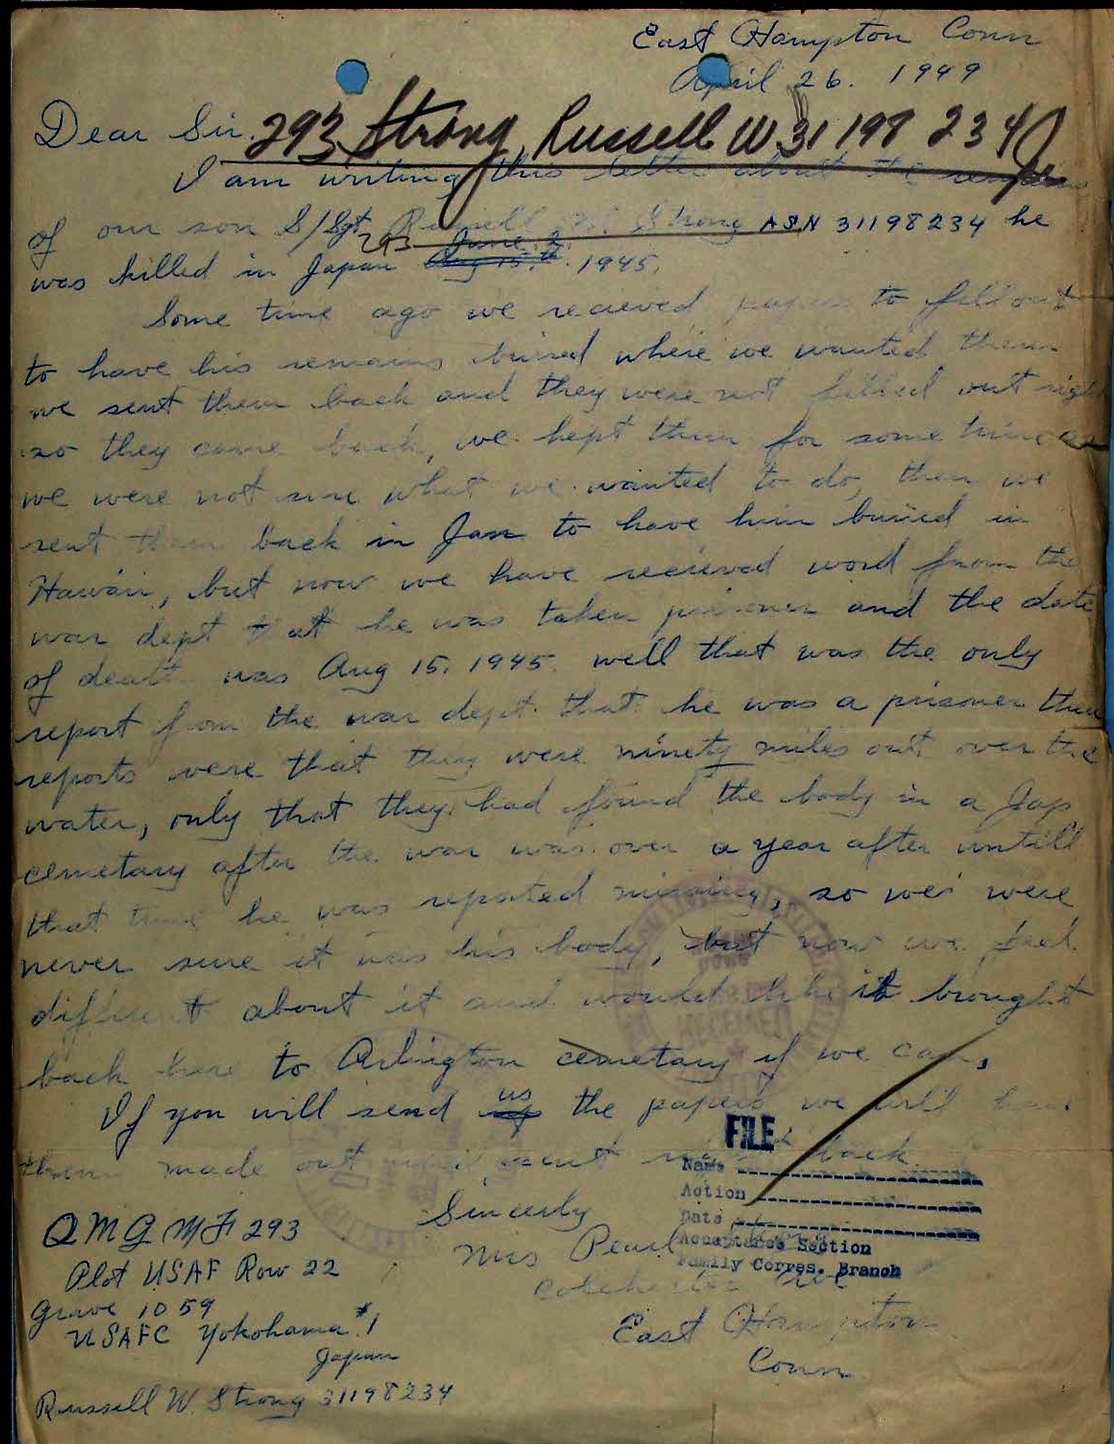 East Hampton Conn
April 26. 1949
Dear Sir.
293 Strong, Russell W 31 198 234
I am writing this letter about the remains
of our son S/Sgt Russell W. Strong ASN 31198234 he
293 June 2
was killed in Japan Aug 15th. 1945.
Some time ago we recieved papers to fill out
to have his remains buired where we wanted them
we sent them back and they were not filled out right
so they came back, we kept them for some time as
we were not sure what we wanted to do, then we
sent them back in Jan to have him buried in
Hawaii, but now we have recieved word from the
war dept that he was taken prisoner and the date
of death was Aug 15. 1945. well that was the only
report from the war dept. that he was a prisoner their
reports were that they were ninety miles out over the
water, only that they had found the body in a Jap
cemetary after the war was over a year after untill
that time he was reported missing, so we were
never sure it was his body, but now we feel
different about it and would like it brought
back here to Arlington cemetary if we can,
If you will send us the papers we will have
them made out and sent right back
Sincerly
Mrs Pearl
Colchester Ave
East Hampton
Conn
RECEIVED
FILE
Name
Action
Date
Acceptance Section
Family Corres. Branch
QMGMF 293
Plot USAF Row 22
Grave 1059
USAFC Yokohama #1
Japan
Russell W. Strong 31198234